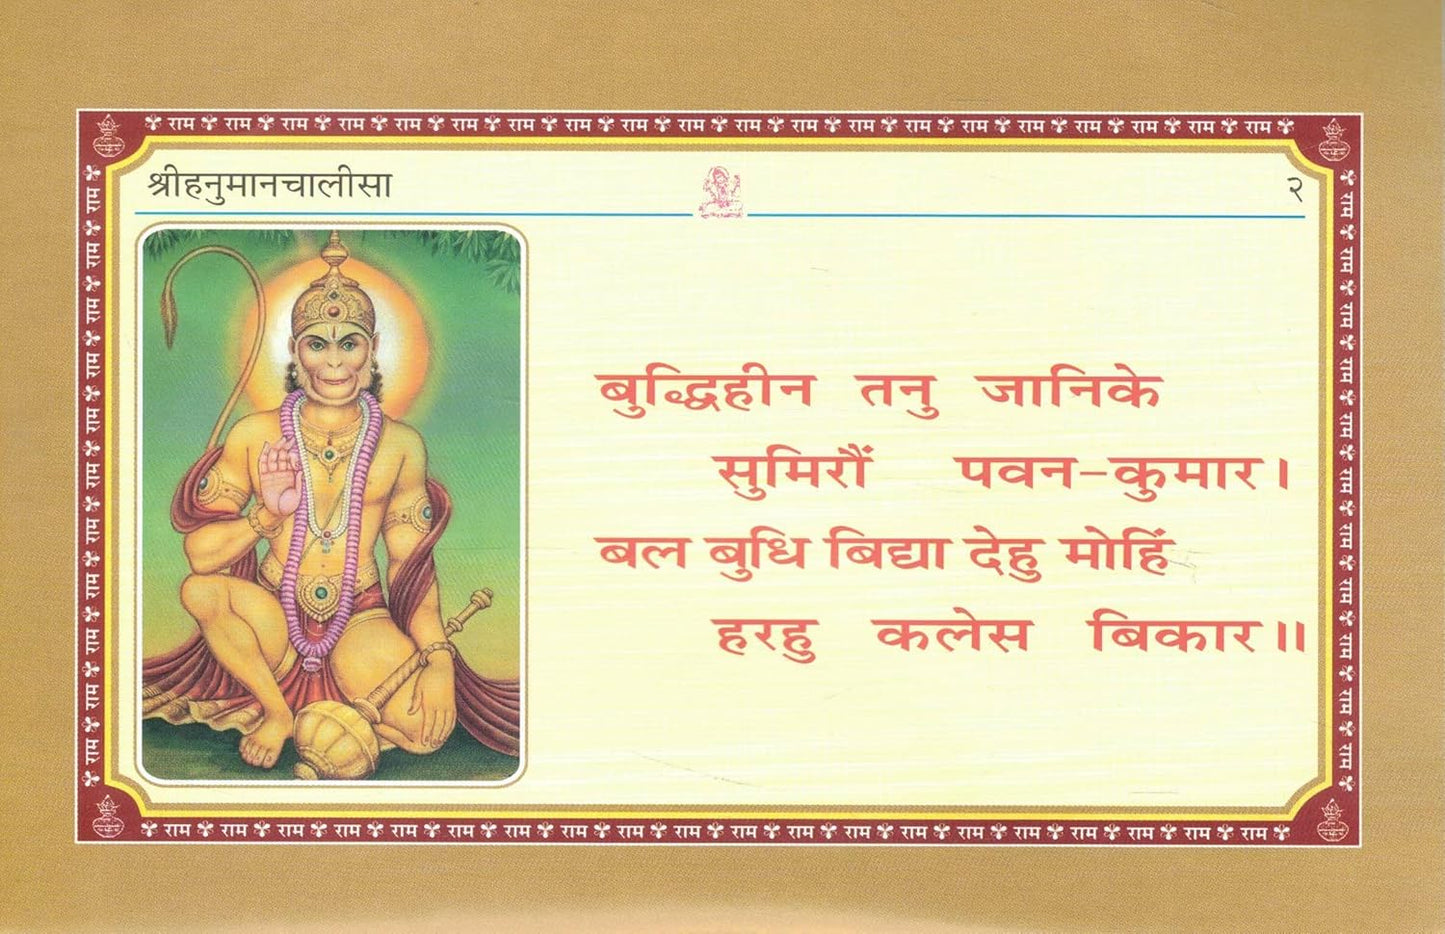 राम राम राम राम राम राम राम राम राम राम राम राम राम राम राम राम राम राम राम राम
श्रीहनुमानचालीसा
२
बुद्धिहीन तनु जानिके
सुमिरौं पवन-कुमार।
बल बुधि बिद्या देहु मोहिं
हरहु कलेस बिकार॥
राम राम राम राम राम राम राम राम राम राम राम
राम राम राम राम राम राम राम राम राम राम राम
राम राम राम राम राम राम राम राम राम राम राम राम राम राम राम राम राम राम राम राम